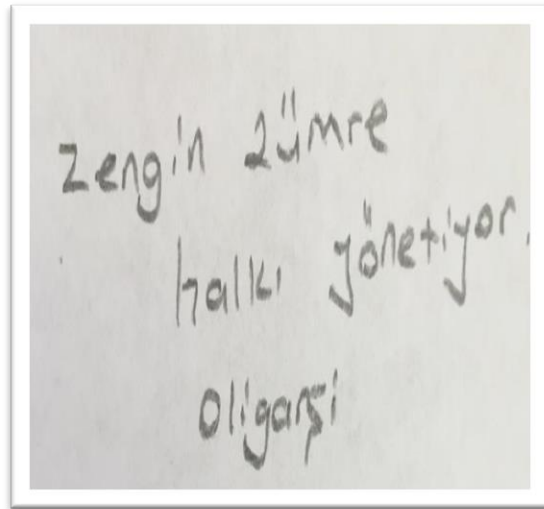 zengin zümre
halkı yönetiyor.
oligarşi